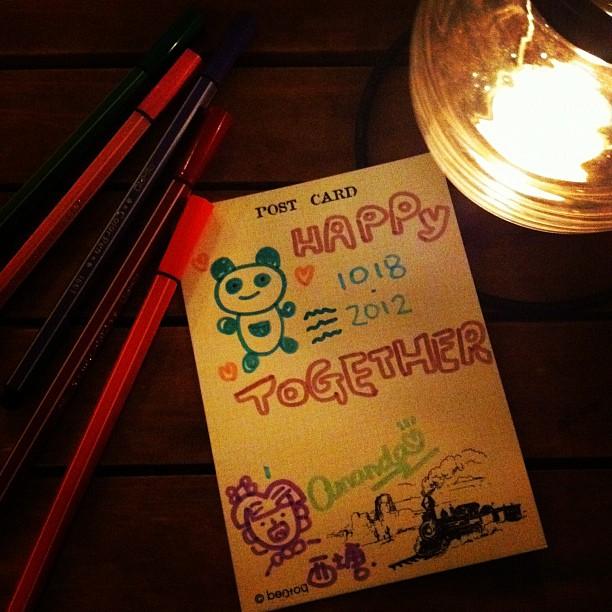 POST CARD
HAPPY
10.18
.
2012
TOGETHER
Amanda
西塘.
© bentoy